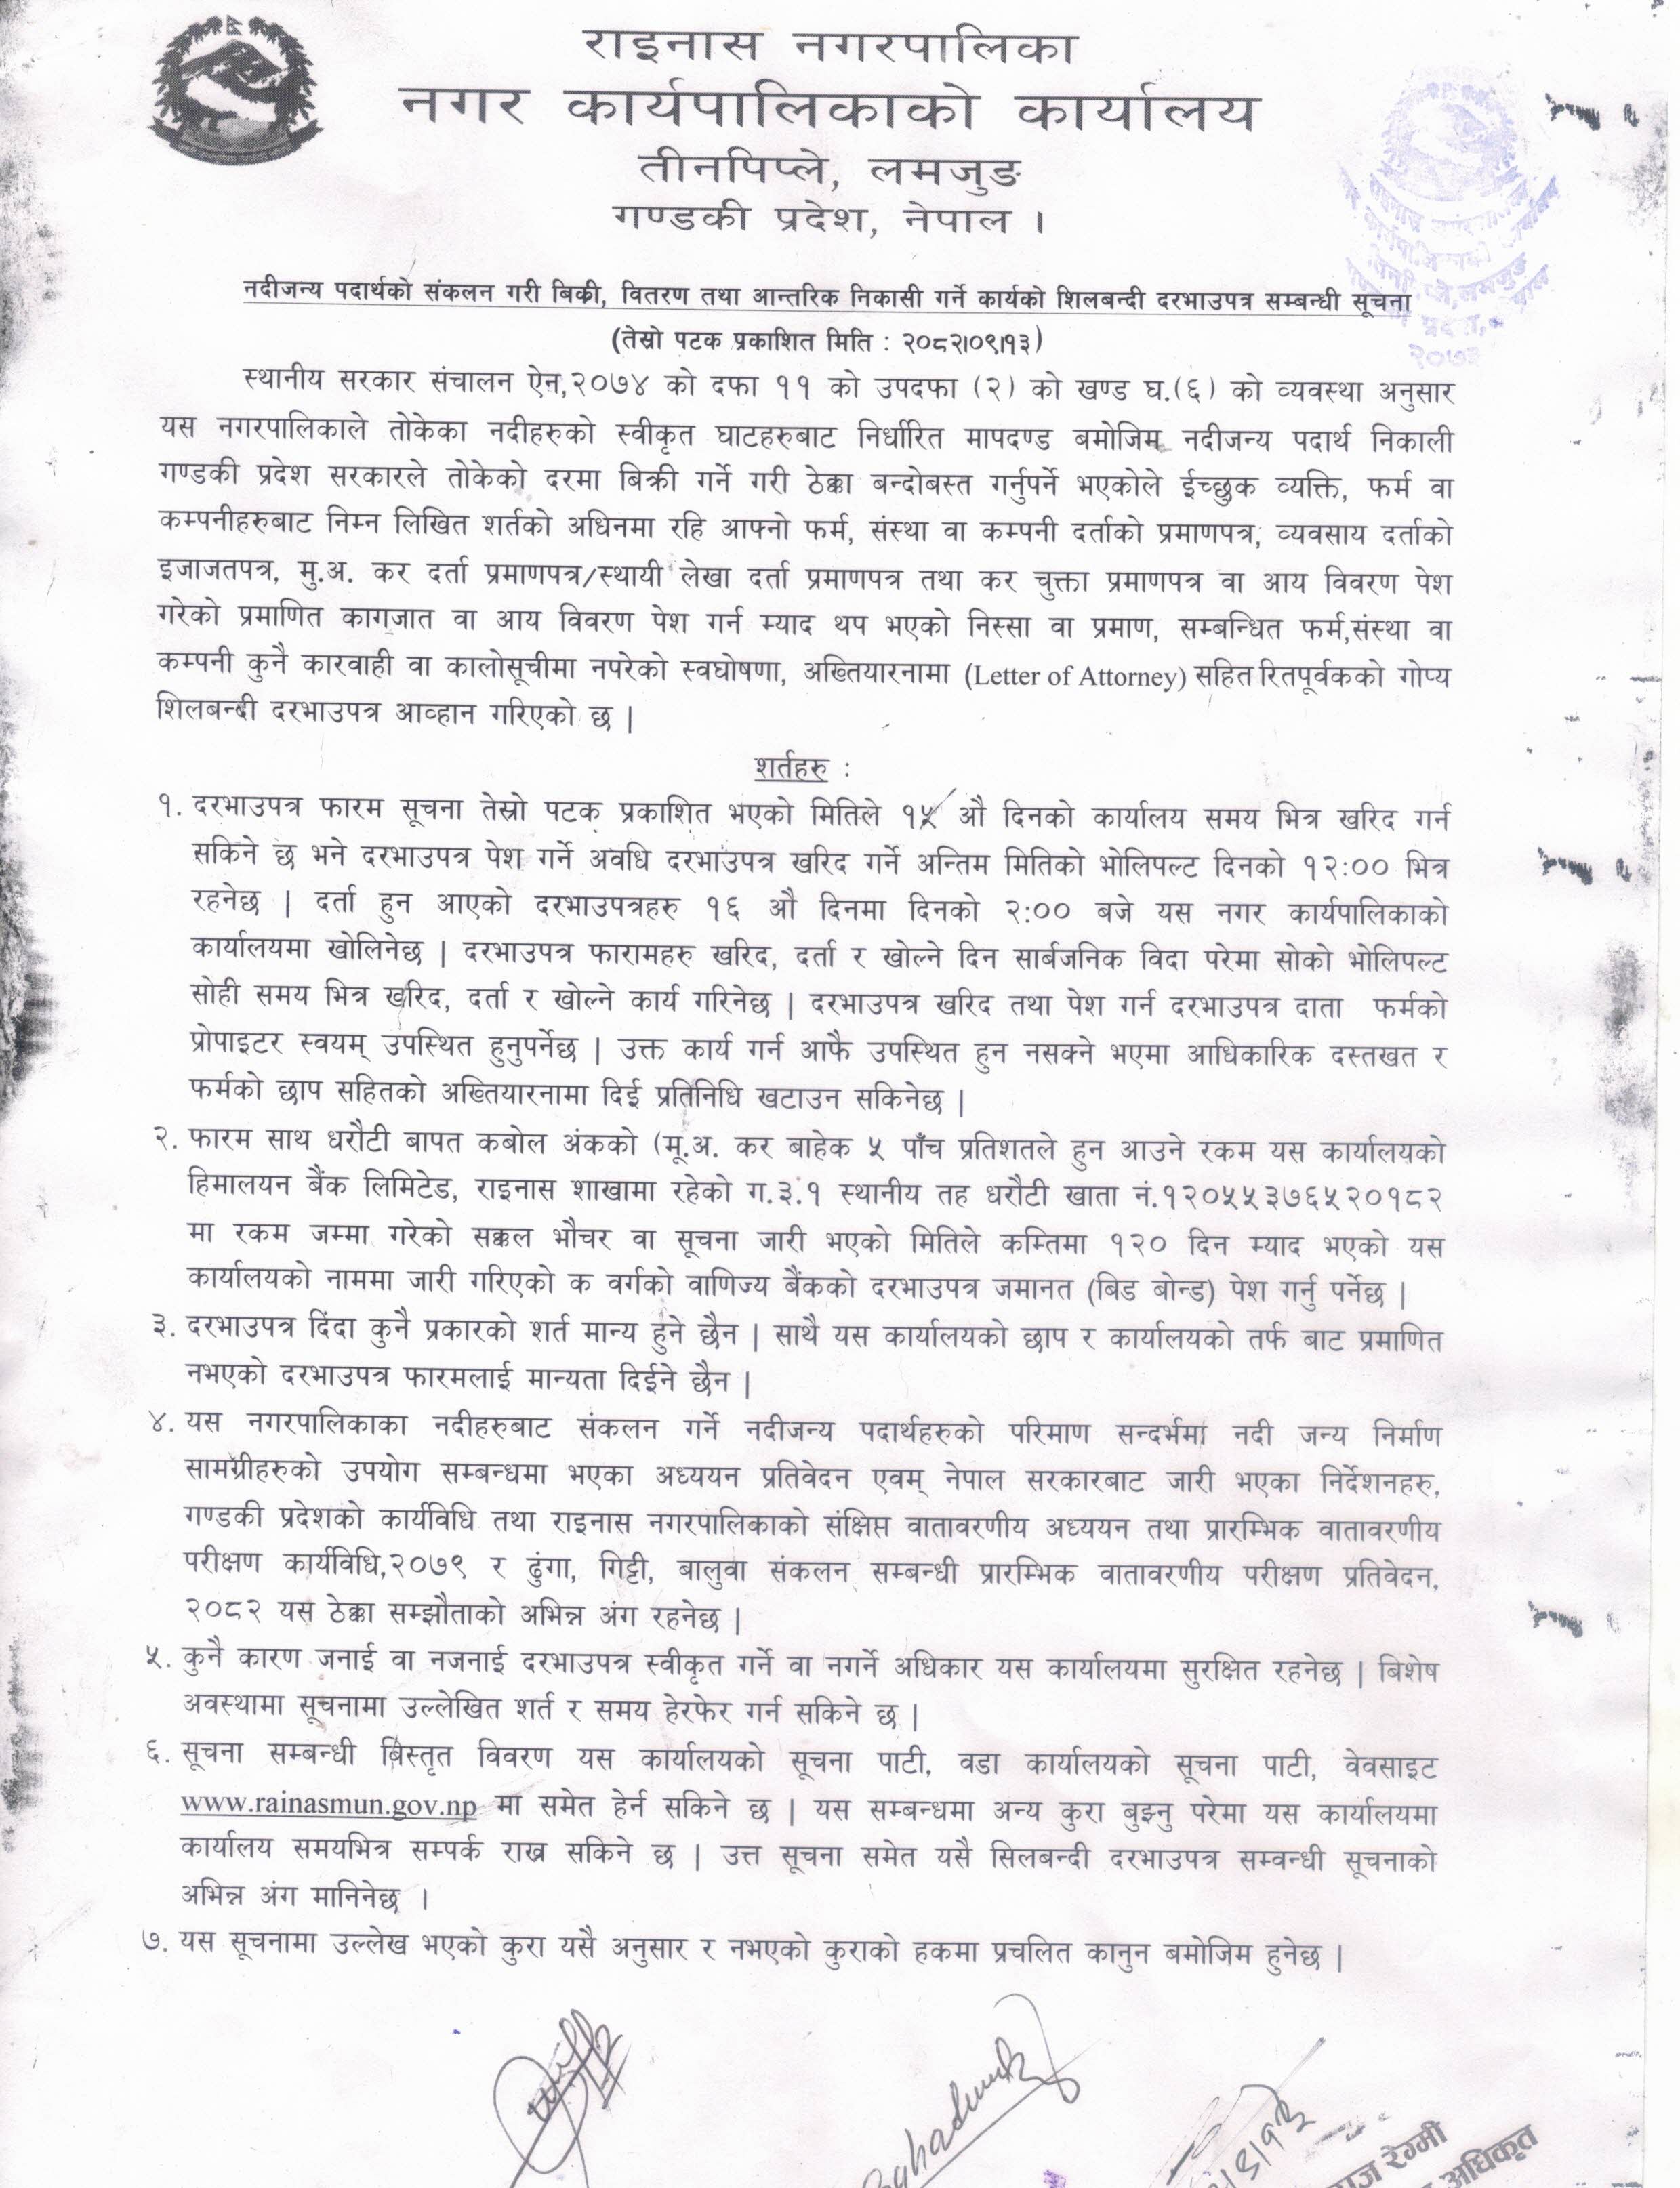 राइनास नगरपालिका
नगर कार्यपालिकाको कार्यालय
तीनपिप्ले, लमजुङ
गण्डकी प्रदेश, नेपाल ।
नदीजन्य पदार्थको संकलन गरी बिक्री, वितरण तथा आन्तरिक निकासी गर्ने कार्यको शिलबन्दी दरभाउपत्र सम्बन्धी सूचना
(तेस्रो पटक प्रकाशित मिति : २०८२।०९।१३)
स्थानीय सरकार संचालन ऐन,२०७४ को दफा ११ को उपदफा (२) को खण्ड घ.(६) को व्यवस्था अनुसार
यस नगरपालिकाले तोकेका नदीहरुको स्वीकृत घाटहरुबाट निर्धारित मापदण्ड बमोजिम नदीजन्य पदार्थ निकाली
गण्डकी प्रदेश सरकारले तोकेको दरमा बिक्री गर्ने गरी ठेक्का बन्दोबस्त गर्नुपर्ने भएकोले ईच्छुक व्यक्ति, फर्म वा
कम्पनीहरुबाट निम्न लिखित शर्तको अधिनमा रहि आफ्नो फर्म, संस्था वा कम्पनी दर्ताको प्रमाणपत्र, व्यवसाय दर्ताको
इजाजतपत्र, मु.अ. कर दर्ता प्रमाणपत्र/स्थायी लेखा दर्ता प्रमाणपत्र तथा कर चुक्ता प्रमाणपत्र वा आय विवरण पेश
गरेको प्रमाणित कागजात वा आय विवरण पेश गर्न म्याद थप भएको निस्सा वा प्रमाण, सम्बन्धित फर्म,संस्था वा
कम्पनी कुनै कारवाही वा कालोसूचीमा नपरेको स्वघोषणा, अख्तियारनामा (Letter of Attorney) सहित रितपूर्वकको गोप्य
शिलबन्दी दरभाउपत्र आव्हान गरिएको छ |
शर्तहरु :
१. दरभाउपत्र फारम सूचना तेस्रो पटक प्रकाशित भएको मितिले १५ औ दिनको कार्यालय समय भित्र खरिद गर्न
सकिने छ भने दरभाउपत्र पेश गर्ने अवधि दरभाउपत्र खरिद गर्ने अन्तिम मितिको भोलिपल्ट दिनको १२:०० भित्र
रहनेछ | दर्ता हुन आएको दरभाउपत्रहरु १६ औ दिनमा दिनको २:०० बजे यस नगर कार्यपालिकाको
कार्यालयमा खोलिनेछ | दरभाउपत्र फारामहरु खरिद, दर्ता र खोल्ने दिन सार्बजनिक विदा परेमा सोको भोलिपल्ट
सोही समय भित्र खरिद, दर्ता र खोल्ने कार्य गरिनेछ | दरभाउपत्र खरिद तथा पेश गर्न दरभाउपत्र दाता फर्मको
प्रोपाइटर स्वयम् उपस्थित हुनुपर्नेछ | उक्त कार्य गर्न आफै उपस्थित हुन नसक्ने भएमा आधिकारिक दस्तखत र
फर्मको छाप सहितको अख्तियारनामा दिई प्रतिनिधि खटाउन सकिनेछ |
२. फारम साथ धरौटी बापत कबोल अंकको (मू.अ. कर बाहेक ५ पाँच प्रतिशतले हुन आउने रकम यस कार्यालयको
हिमालयन बैंक लिमिटेड, राइनास शाखामा रहेको ग.३.१ स्थानीय तह धरौटी खाता नं.१२०५५३७६५२०१८२
मा रकम जम्मा गरेको सक्कल भौचर वा सूचना जारी भएको मितिले कम्तिमा १२० दिन म्याद भएको यस
कार्यालयको नाममा जारी गरिएको क वर्गको वाणिज्य बैंकको दरभाउपत्र जमानत (बिड बोन्ड) पेश गर्नु पर्नेछ |
३. दरभाउपत्र दिंदा कुनै प्रकारको शर्त मान्य हुने छैन | साथै यस कार्यालयको छाप र कार्यालयको तर्फ बाट प्रमाणित
नभएको दरभाउपत्र फारमलाई मान्यता दिईने छैन |
४. यस नगरपालिकाका नदीहरुबाट संकलन गर्ने नदीजन्य पदार्थहरुको परिमाण सन्दर्भमा नदी जन्य निर्माण
सामग्रीहरुको उपयोग सम्बन्धमा भएका अध्ययन प्रतिवेदन एवम् नेपाल सरकारबाट जारी भएका निर्देशनहरु,
गण्डकी प्रदेशको कार्यविधि तथा राइनास नगरपालिकाको संक्षिप्त वातावरणीय अध्ययन तथा प्रारम्भिक वातावरणीय
परीक्षण कार्यविधि,२०७९ र ढुंगा, गिट्टी, बालुवा संकलन सम्बन्धी प्रारम्भिक वातावरणीय परीक्षण प्रतिवेदन,
२०८२ यस ठेक्का सम्झौताको अभिन्न अंग रहनेछ |
५. कुनै कारण जनाई वा नजनाई दरभाउपत्र स्वीकृत गर्ने वा नगर्ने अधिकार यस कार्यालयमा सुरक्षित रहनेछ | बिशेष
अवस्थामा सूचनामा उल्लेखित शर्त र समय हेरफेर गर्न सकिने छ |
६. सूचना सम्बन्धी बिस्तृत विवरण यस कार्यालयको सूचना पाटी, वडा कार्यालयको सूचना पाटी, वेवसाइट
www.rainasmun.gov.np मा समेत हेर्न सकिने छ | यस सम्बन्धमा अन्य कुरा बुझ्नु परेमा यस कार्यालयमा
कार्यालय समयभित्र सम्पर्क राख्न सकिने छ | उत्त सूचना समेत यसै सिलबन्दी दरभाउपत्र सम्वन्धी सूचनाको
अभिन्न अंग मानिनेछ ।
७. यस सूचनामा उल्लेख भएको कुरा यसै अनुसार र नभएको कुराको हकमा प्रचलित कानुन बमोजिम हुनेछ |
रेग्मी
अधिकृत